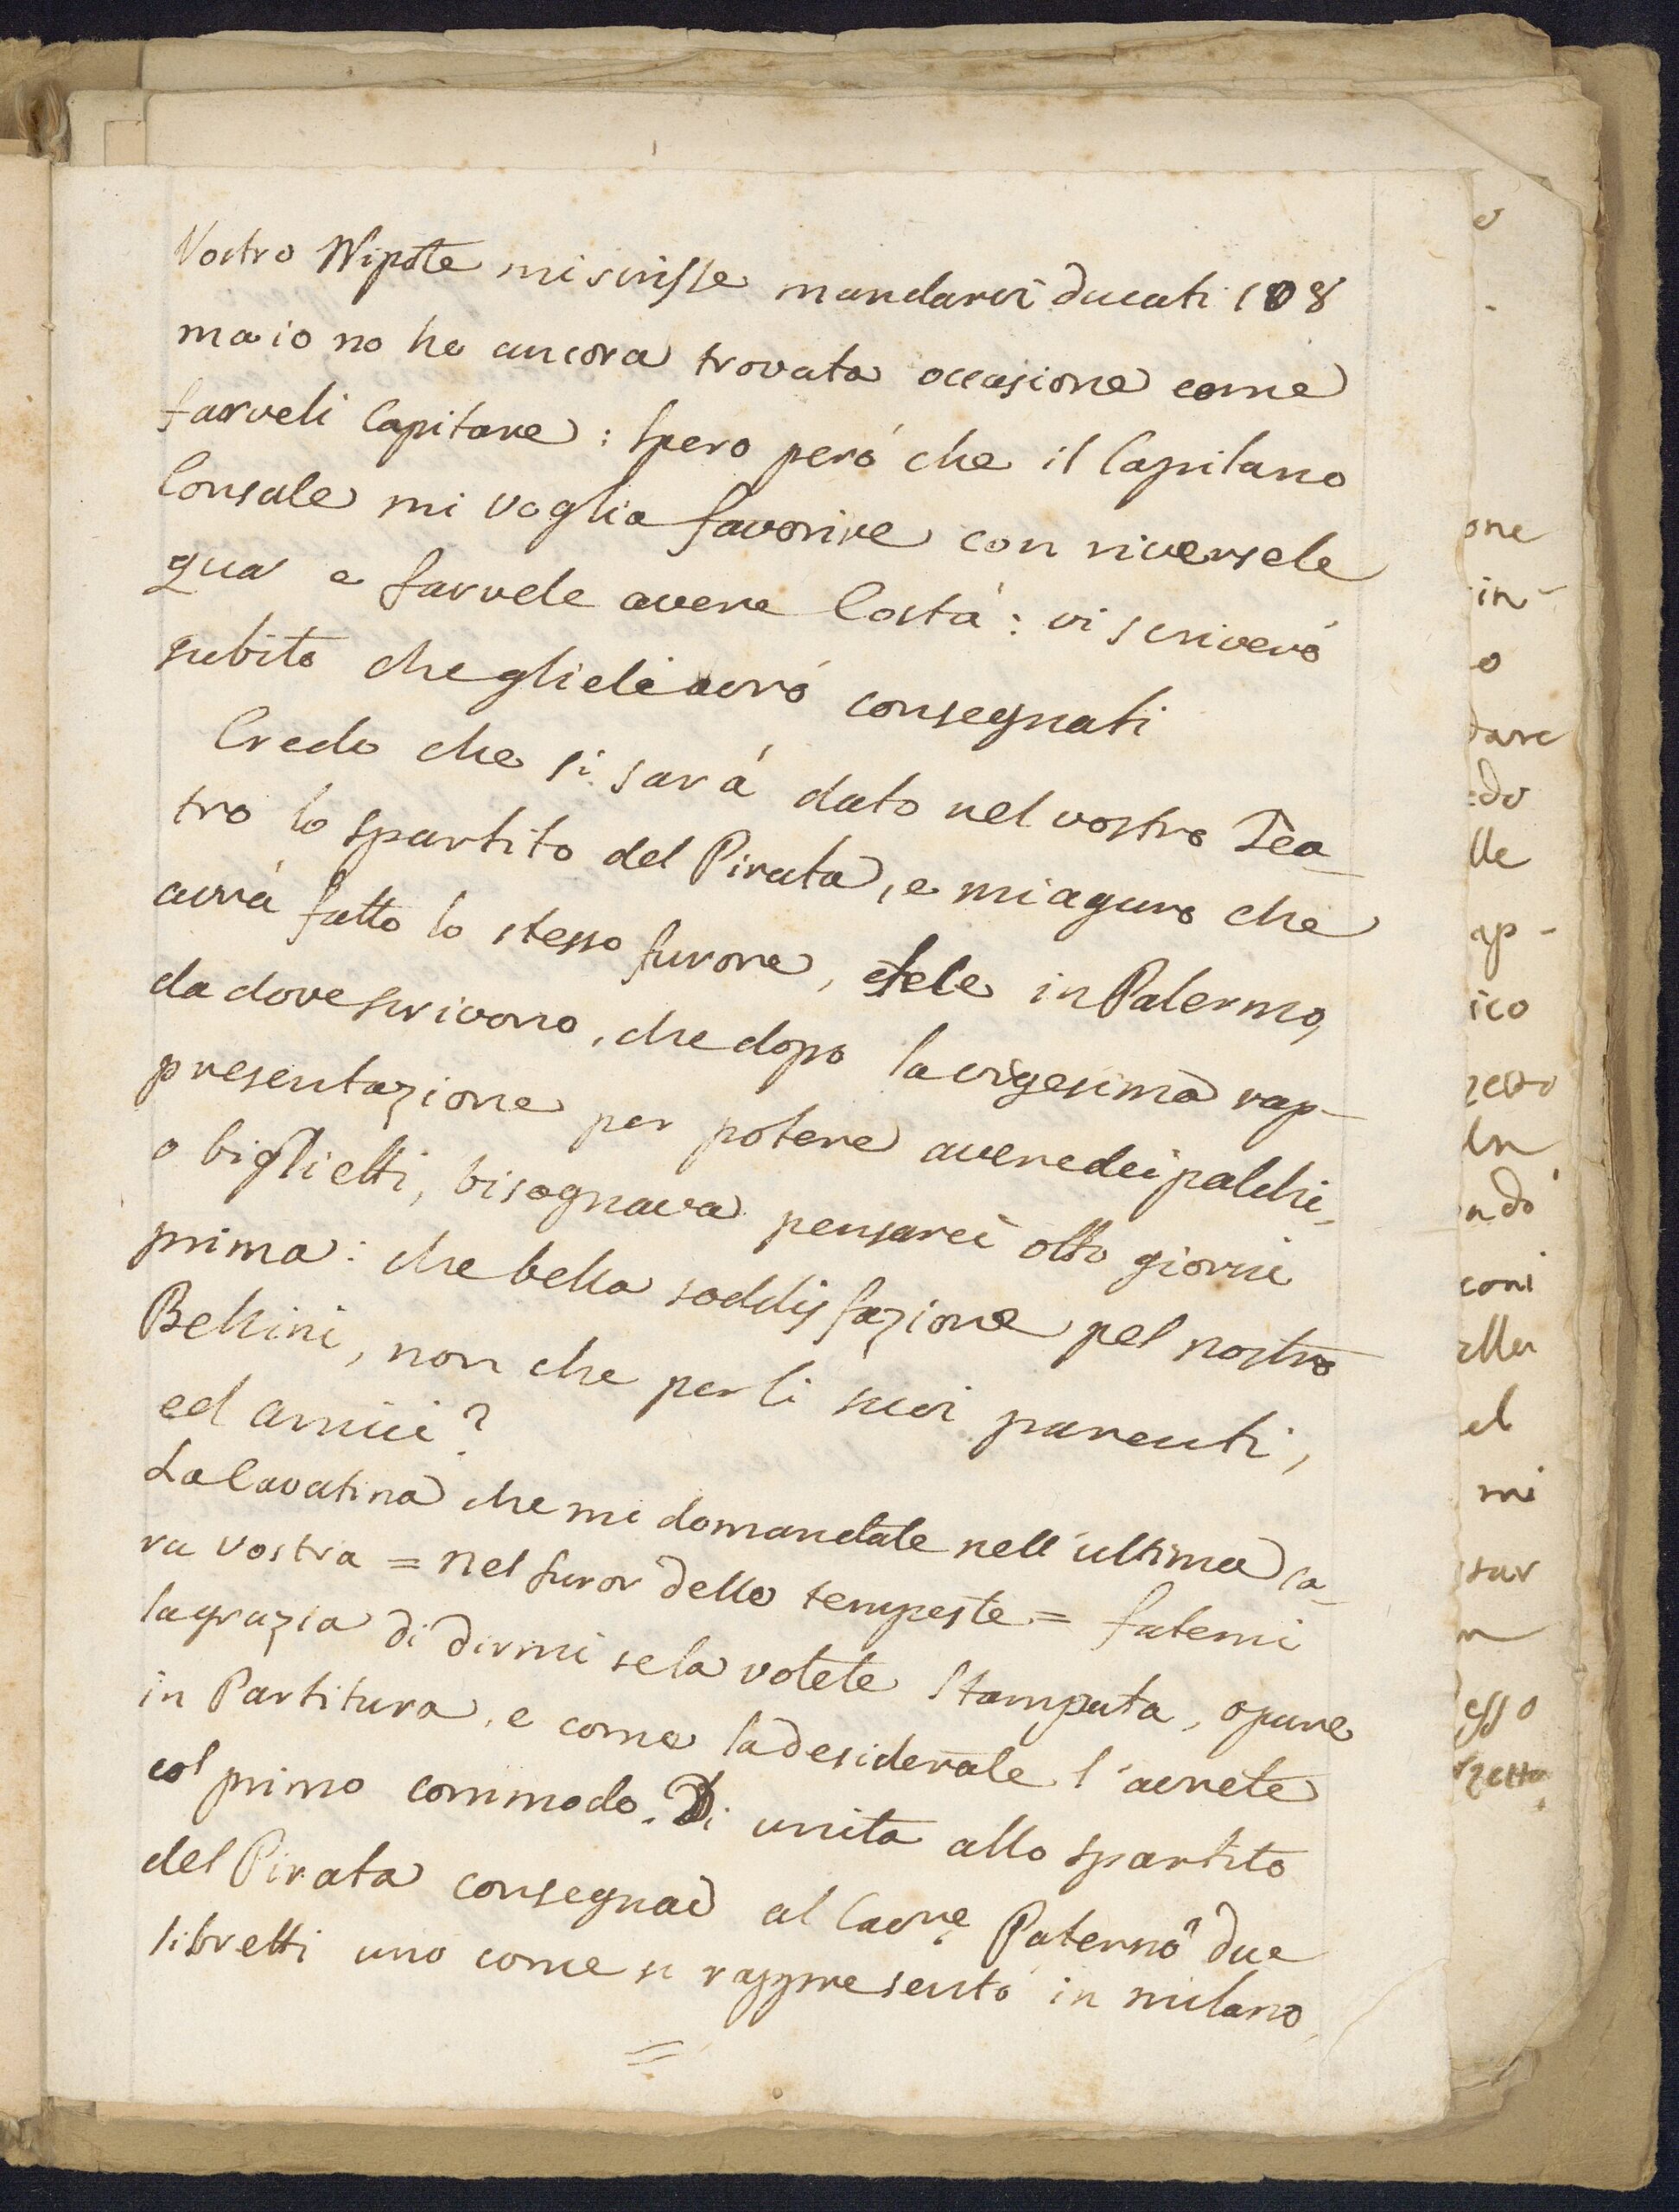 Vostro Nipote mi scrisse mandarvi ducati 108
ma io no ho ancora trovata occasione come
farveli Capitare: Spero però che il Capitano
Consale mi voglia favorire con riceversele
qua e farvele avere Costà: vi scriverò
subito che glieli avrò consegnati
Credo che si sarà dato nel vostro Tea-
tro lo spartito del Pirata, e mi aguro che
avrà fatto lo stesso furore, che in Palermo,
da dove scrivono, che dopo la vigesima rap-
presentazione per potere avere dei palchi,
o biglietti, bisognava pensarci otto giorni
prima: che bella soddisfazione pel nostro
Bellini, non che per li suoi parenti,
ed amici?
La Cavatina che mi domandate nell'ultima ca-
ra vostra = Nel furor delle tempeste = fatemi
la grazia di dirmi se la volete Stampata, opure
in Partitura, e come la desiderate l'avrete
col primo commodo. Di unita allo spartito
del Pirata consegnai al Cavre Paternò due
libretti uno come si rappresentò in milano
=
o
-
one
in-
o
dare
edo
lle
ap-
ico
ndò
coni
ella
el
mi
star
n
esso
zetto